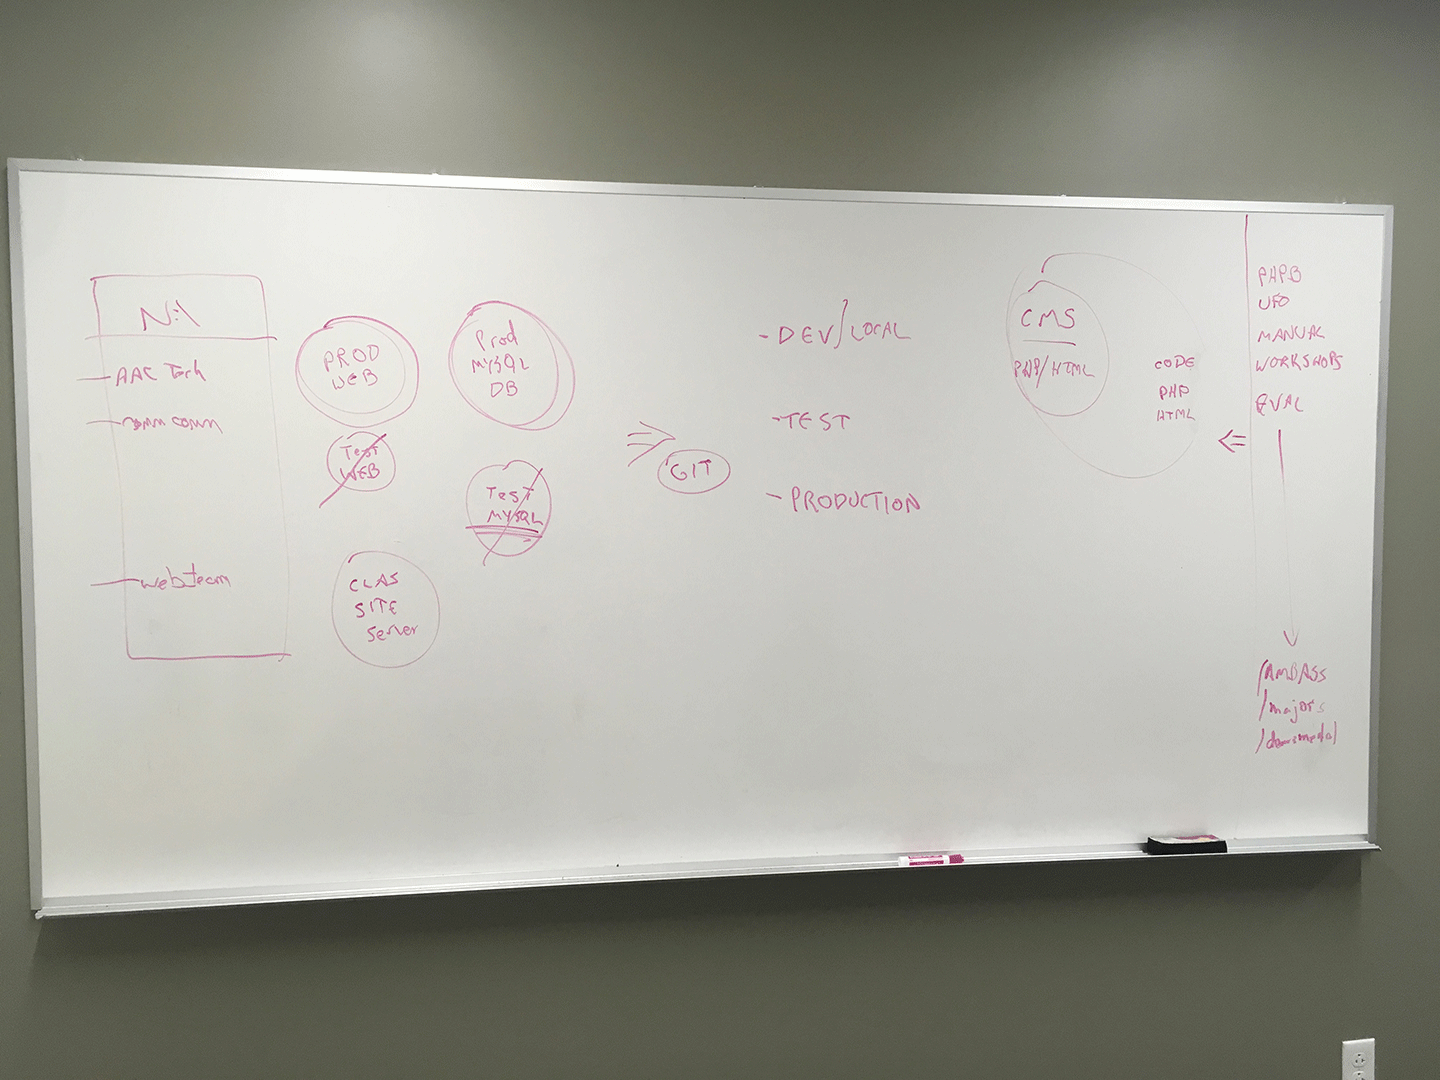 N:\
AAC Tech
comm comm
web_team
PROD
WEB
Prod
MYSQL
DB
Test
WEB
Test
MYSQL
CLAS
SITE
Server
GIT
- DEV/LOCAL
- TEST
- PRODUCTION
CMS
PHP/HTML
CODE
PHP
HTML
PHPB
UFO
MANUAL
WORKSHOPS
EVAL
/AMBASS
/majors